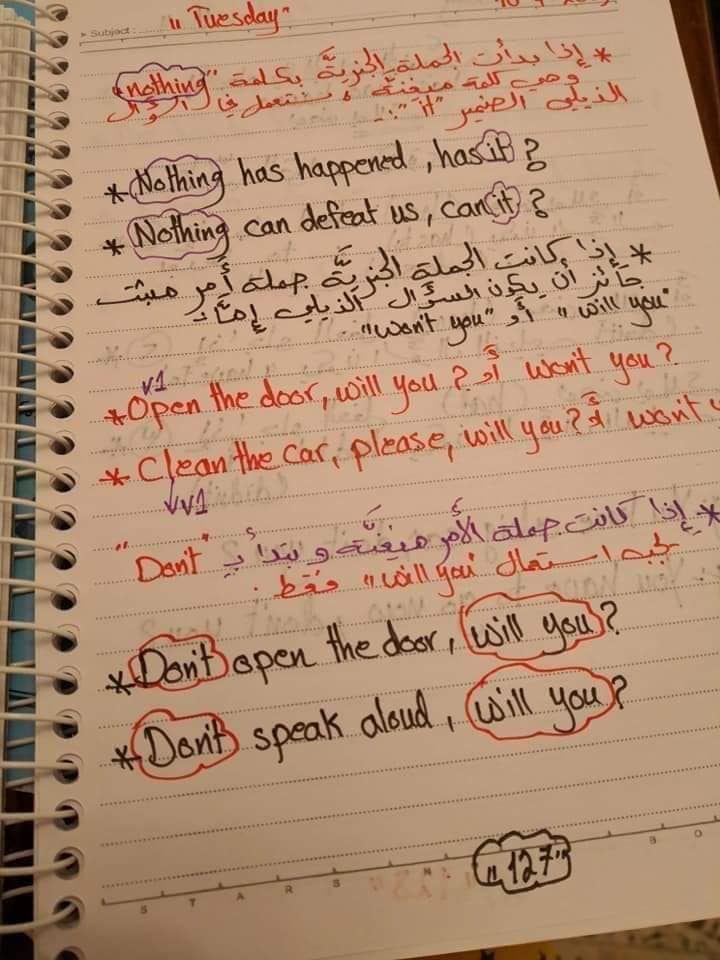 Subject : "Tuesday"
* إذا بدأت الجملة الخبريَّة بكلمة "nothing"
وهي كلمة منفيَّة، نستعمل في السؤال
الذيلي الضمير "it" :-
* Nothing has happened, has it?
* Nothing can defeat us, can it?
* إذا كانت الجملة الخبريَّة جملة أمر مثبت
جائز أن يكون السؤال الذيلي إمَّا:
"will you" أو "won't you"
v1
* Open the door, will you? أو won't you?
* Clean the car, please, will you? أو won't
v1
* إذا كانت جملة الأمر منفيَّة و تبدأ بـ "Don't"
يجب استعمال "will you" فقط.
* Don't open the door, will you?
* Don't speak aloud, will you?
"127"
S T A R S